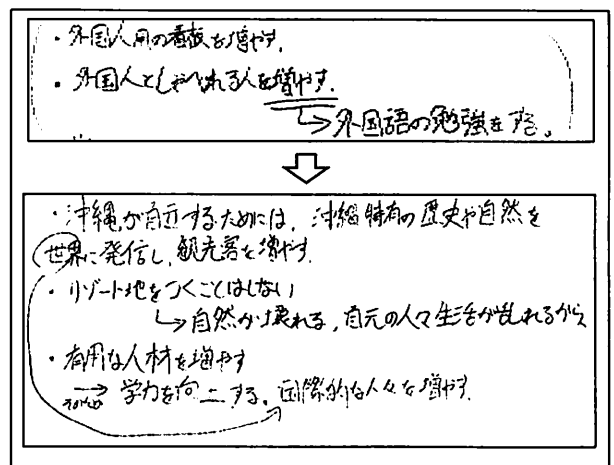 ・外国人用の看板を増やす。
・外国人としゃべれる人を増やす。
外国語の勉強をする。
・沖縄が自立するためには、沖縄特有の歴史や自然を
世界に発信し、観光客を増やす。
・リゾート地をつくことはしない
自然が壊れる、自元の人々生活が乱れるから
・有用な人材を増やす
学力を向上する。国際的な人々を増やす。